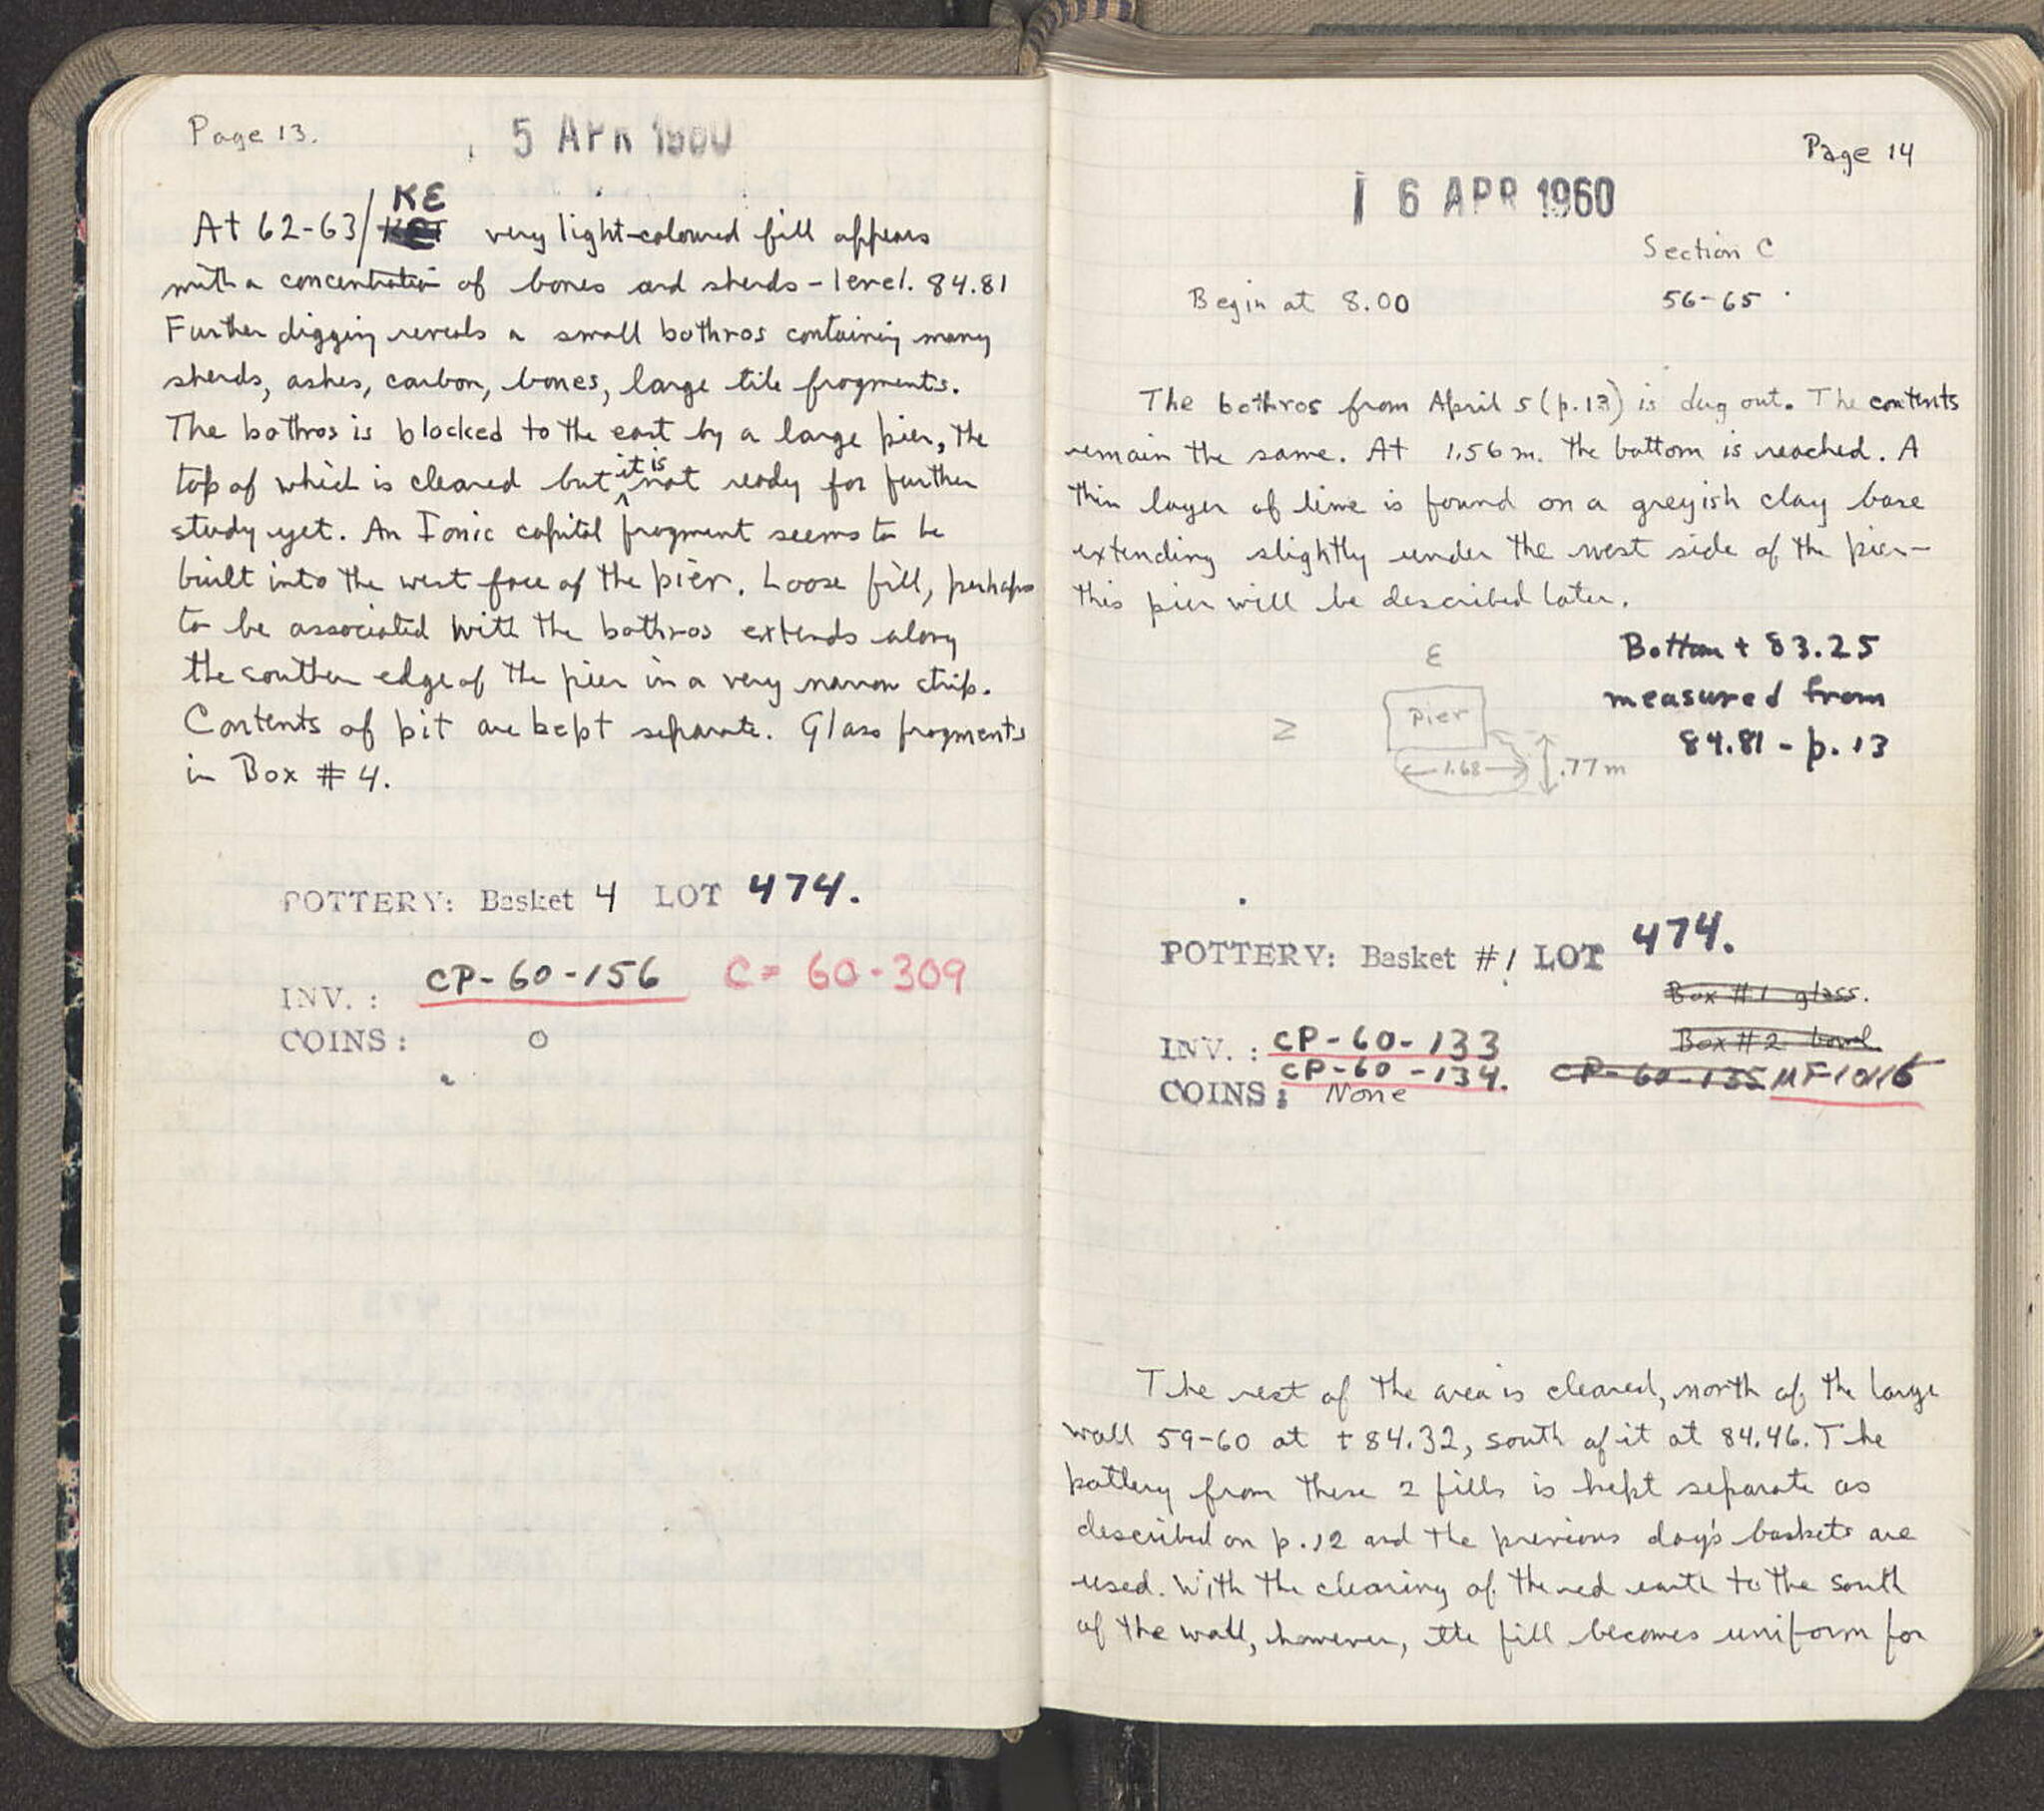 Page 13.
5 APR 1960
KE
At 62-63/ very light-coloured fill appears
with a concentration of bones and sherds - level. 84.81
Further digging reveals a small bothros containing many
sherds, ashes, carbon, bones, large tile fragments.
The bothros is blocked to the east by a large pier, the
top of which is cleared but it is not ready for further
study yet. An Ionic capital fragment seems to be
built into the west face of the pier. Loose fill, perhaps
to be associated with the bothros extends along
the southern edge of the pier in a very narrow strip.
Contents of pit are kept separate. Glass fragments
in Box # 4.
POTTERY: Basket 4 LOT 474.
INV. : CP-60-156 C= 60-309
COINS: 0
Page 14
6 APR 1960
Section C
Begin at 8.00 56-65
The bothros from April 5 (p.13) is dug out. The contents
remain the same. At 1.56 m. the bottom is reached. A
thin layer of lime is found on a greyish clay base
extending slightly under the west side of the pier-
this pier will be described later.
E
N
Pier
1.68
.77m
Bottom + 83.25
measured from
84.81 - p. 13
POTTERY: Basket #1 LOT 474.
Box #1 glass.
Box #2 bowl
INV. : CP-60-133
CP-60-134. CP-60-135 MF10116
COINS: None
The rest of the area is cleared, north of the large
wall 59-60 at +84.32, south of it at 84.46. The
pottery from these 2 fills is kept separate as
described on p.12 and the previous day's baskets are
used. With the clearing of the red earth to the south
of the wall, however, the fill becomes uniform for